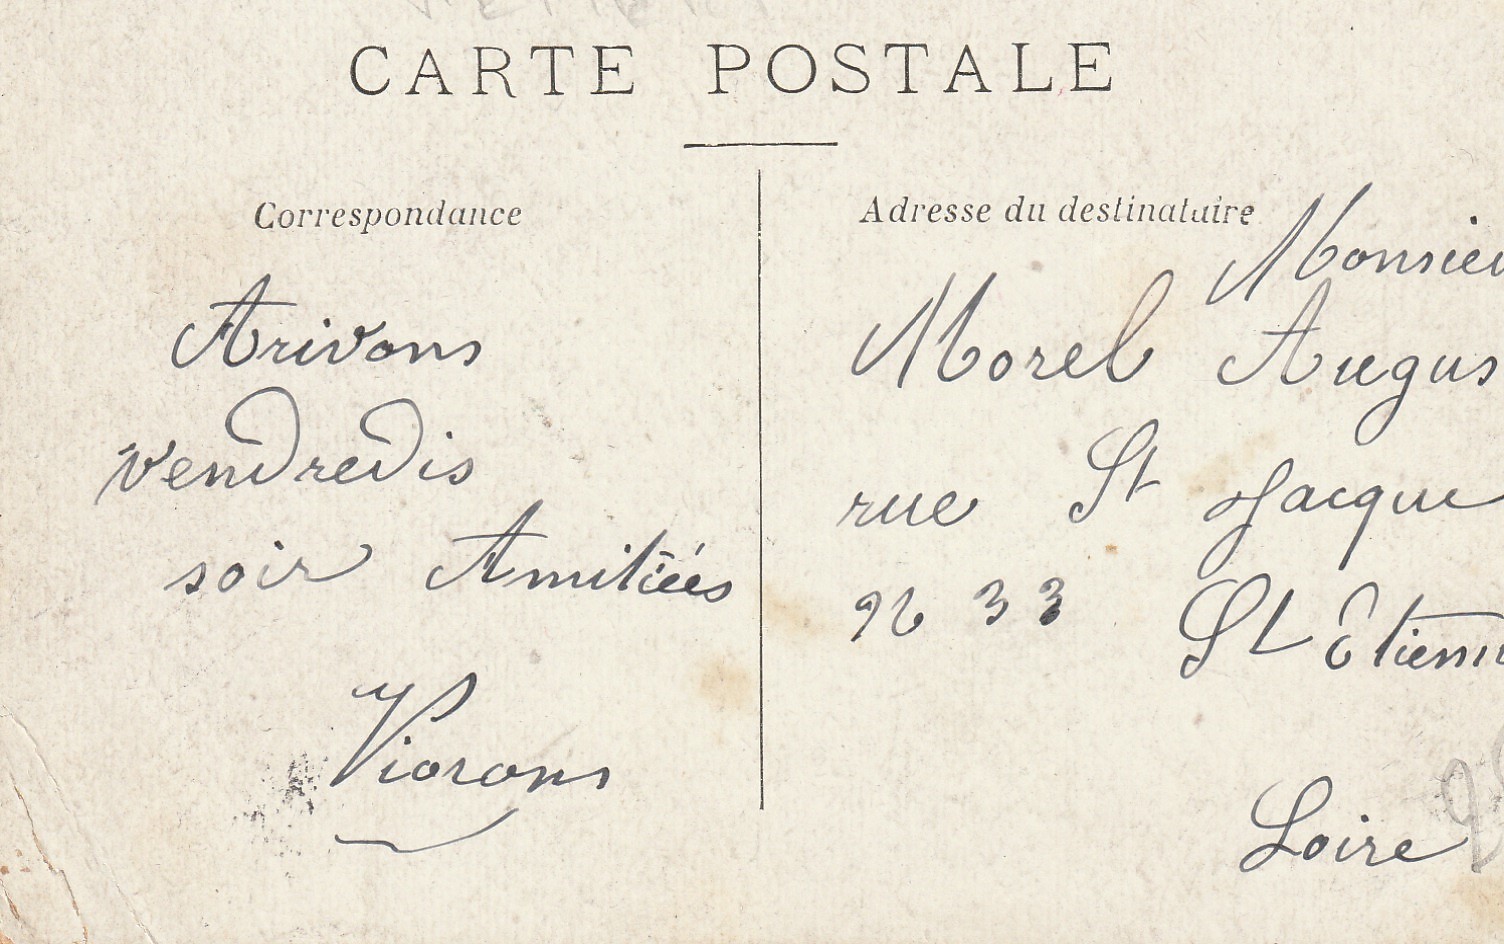 CARTE POSTALE
Correspondance
Arivons
vendredis
soir Amitiées
Viorons
Adresse du destinataire
Monsieu
Morel Augus
rue St Jacque
33 St Etienn
Loire